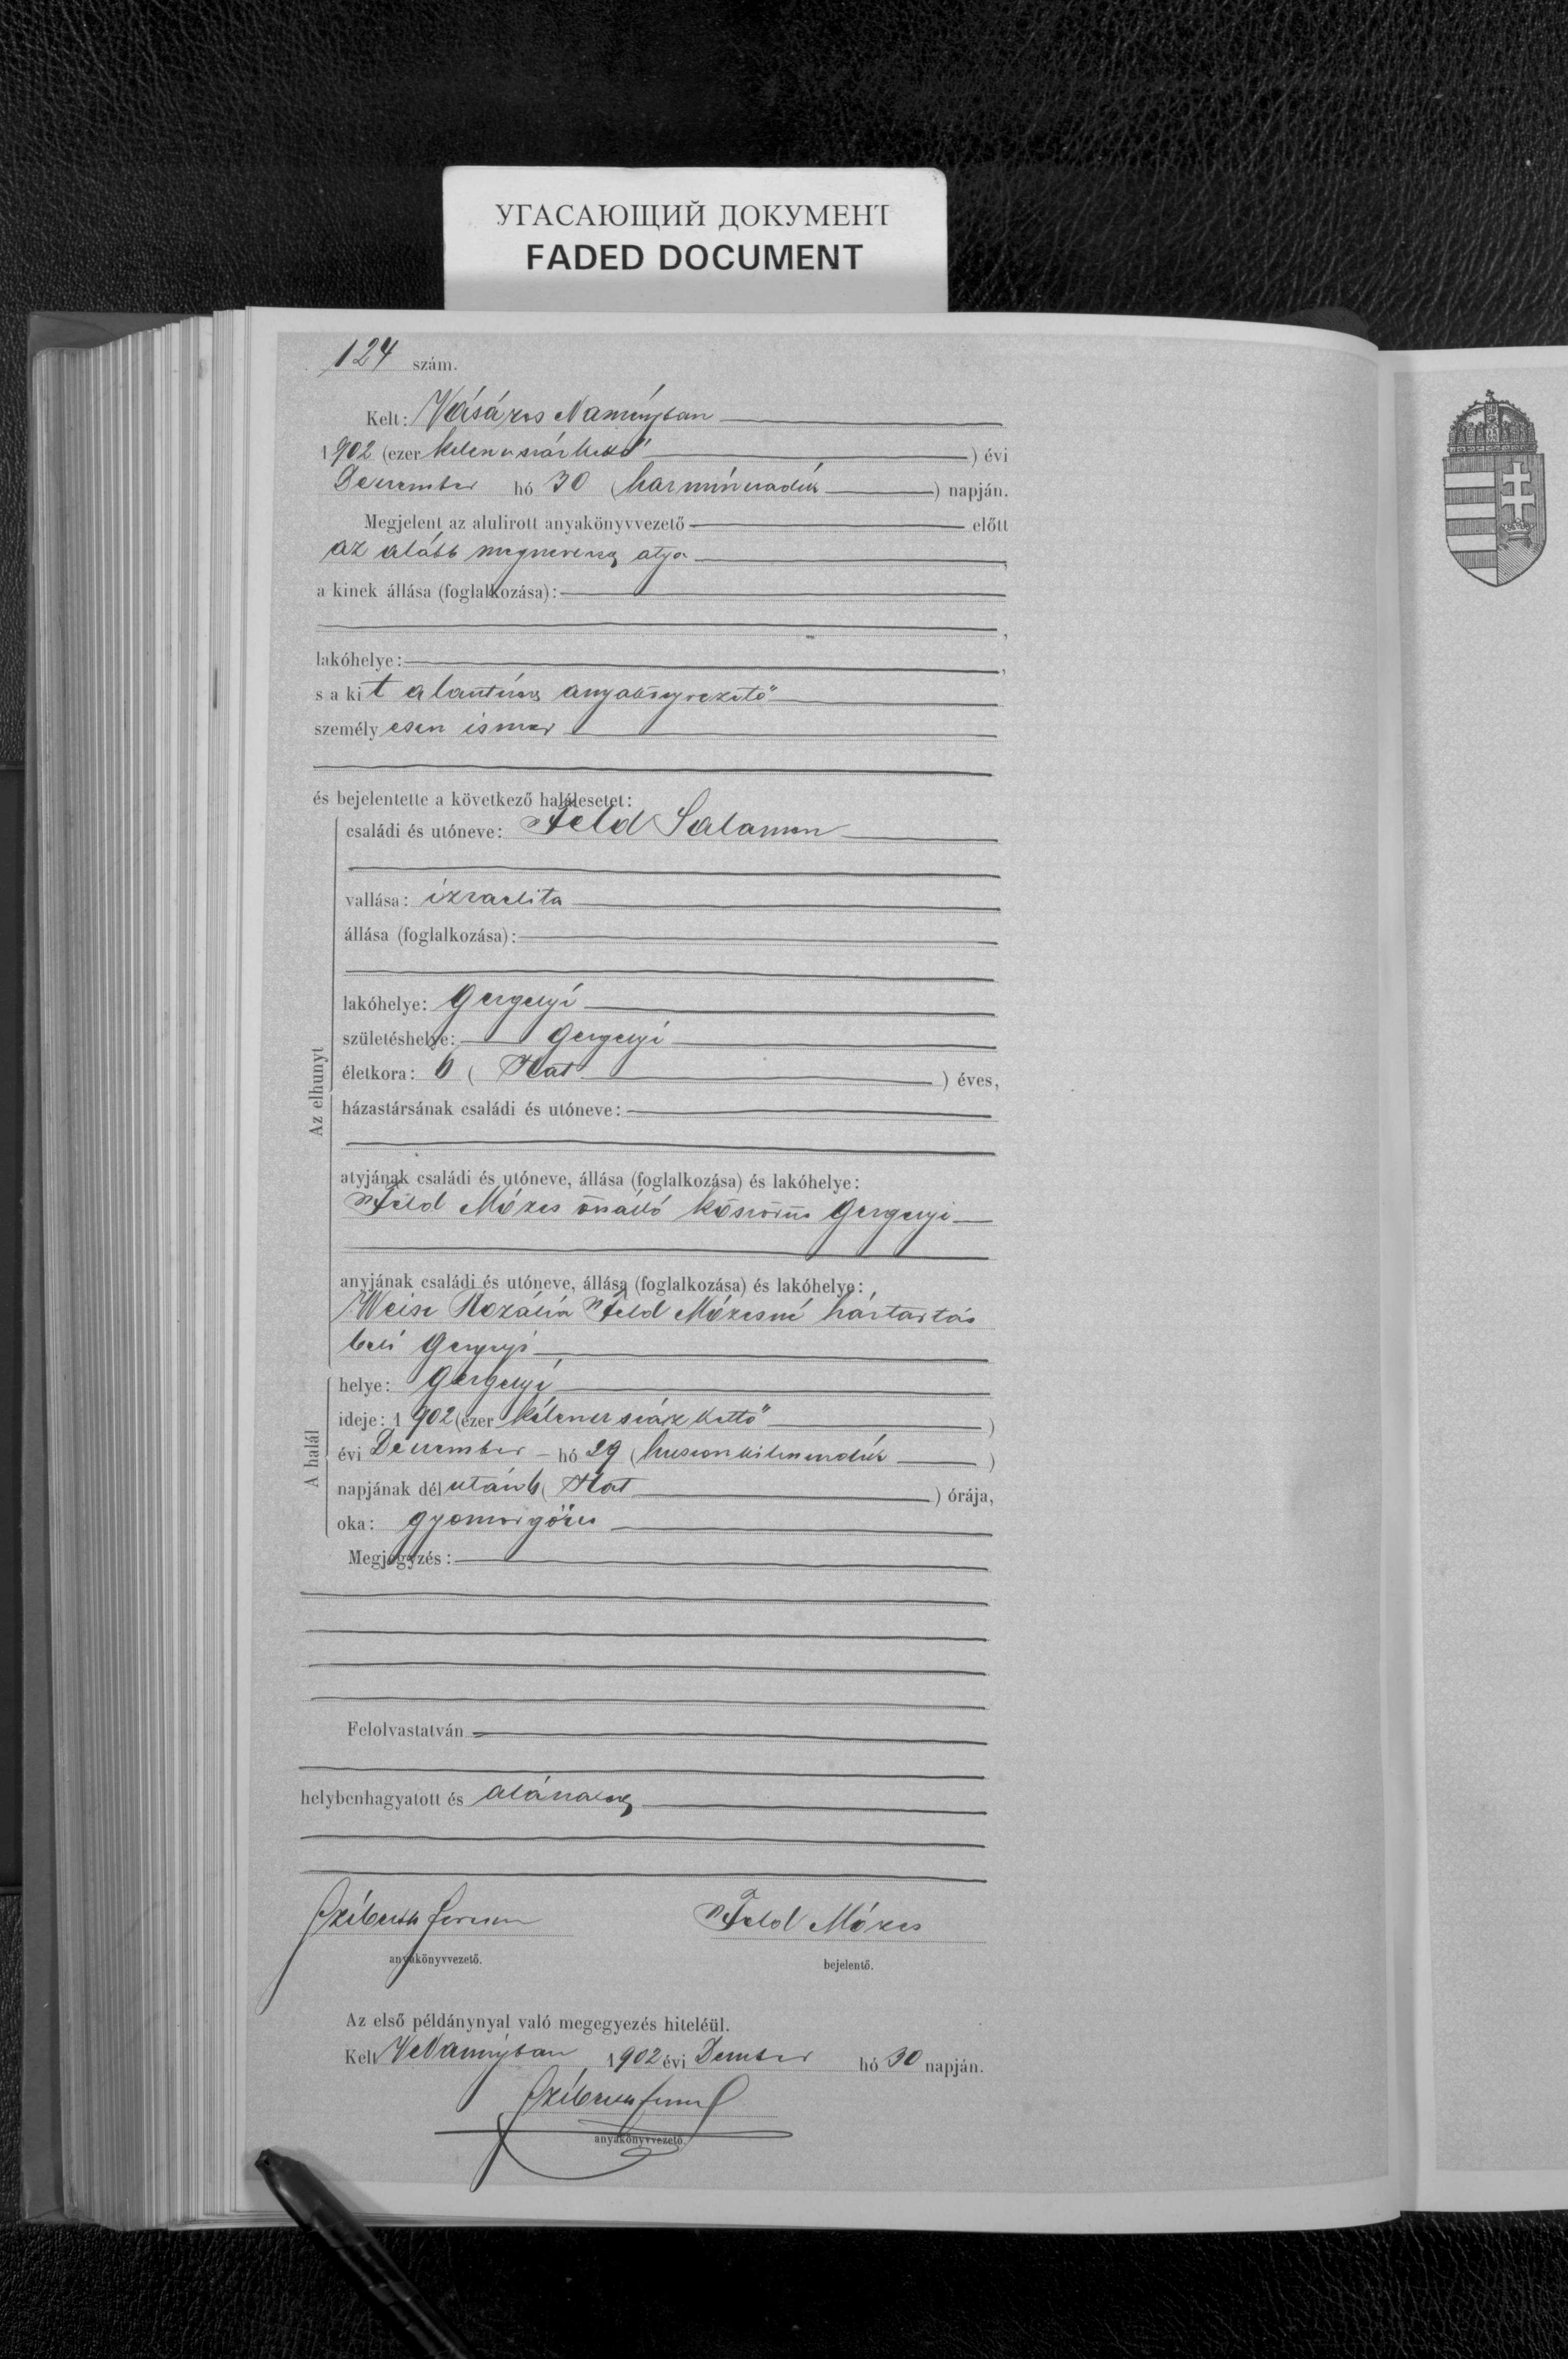 УГАСАЮЩИЙ ДОКУМЕНТ
FADED DOCUMENT
124 szám.
Kelt: Vásáros Naményban
1902 (ezer kilenczszázkettő) évi
Deczember hó 30 (harminczadik) napján.
Megjelent az alulirott anyakönyvvezető előtt
az alább megnevezett atya,
a kinek állása (foglalkozása):
,
lakóhelye: ,
s a kit alantírt anyakönyvvezető
személyesen ismer
és bejelentette a következő halálesetet:
Az elhunyt
családi és utóneve: Feld Salamon
vallása: izraelita
állása (foglalkozása):
lakóhelye: Gergelyi
születéshelye: Gergelyi
életkora: 6 (Hat) éves,
házastársának családi és utóneve:
atyjának családi és utóneve, állása (foglalkozása) és lakóhelye:
Feld Mózes önálló köszörűs Gergelyi
anyjának családi és utóneve, állása (foglalkozása) és lakóhelye:
Weisz Rozália Feld Mózesné háztartás
beli Gergelyi
A halál
helye: Gergelyi
ideje: 1902 (ezer kilenczszázkettő)
évi Deczember hó 29 (huszonkilenczedik)
napjának délután 6 (Hat) órája,
oka: gyomorgörcs
Megjegyzés:
Felolvastatván
helybenhagyatott és aláíratott
Feld Mózes
anyakönyvvezető.
bejelentő.
Az első példánynyal való megegyezés hiteléül.
Kelt VNaményban 1902 évi Deczember hó 30 napján.
anyakönyvvezető.